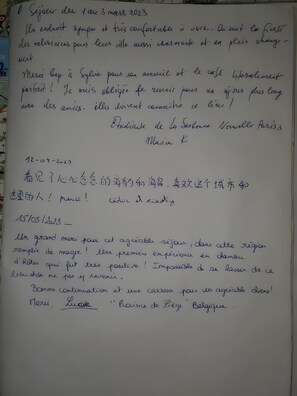 Séjour du 1 au 3 mars 2023
Un endroit sympa et très confortable à vivre. On sent la fierté
des
pour leur ville aussi charmante et en plein change-
ment
Merci bcp à Sylvie pour son accueil et le café littéralement
parfait ! Je suis obligée de revenir pour un séjour plus long
avec des amies. Elles doivent connaître ce lieu !
Étudiante de La Sorbonne Nouvelle Paris 3
Maria K
12-04-2023
看见了心心念念的海豹和海鸥,喜欢这个城市和
这里的人! merci !
15/05/2023
Un grand merci pour cet agréable séjour, dans cette région
remplie de magie ! Une première expérience en chambre
d'hôtes qui fut très positive ! Impossible de se lasser de ce
lieu et
de ne pas y revenir.
Bonne continuation et une caresse pour vos agréables chiens !
Merci, Lucie "Province de Liège" Belgique.